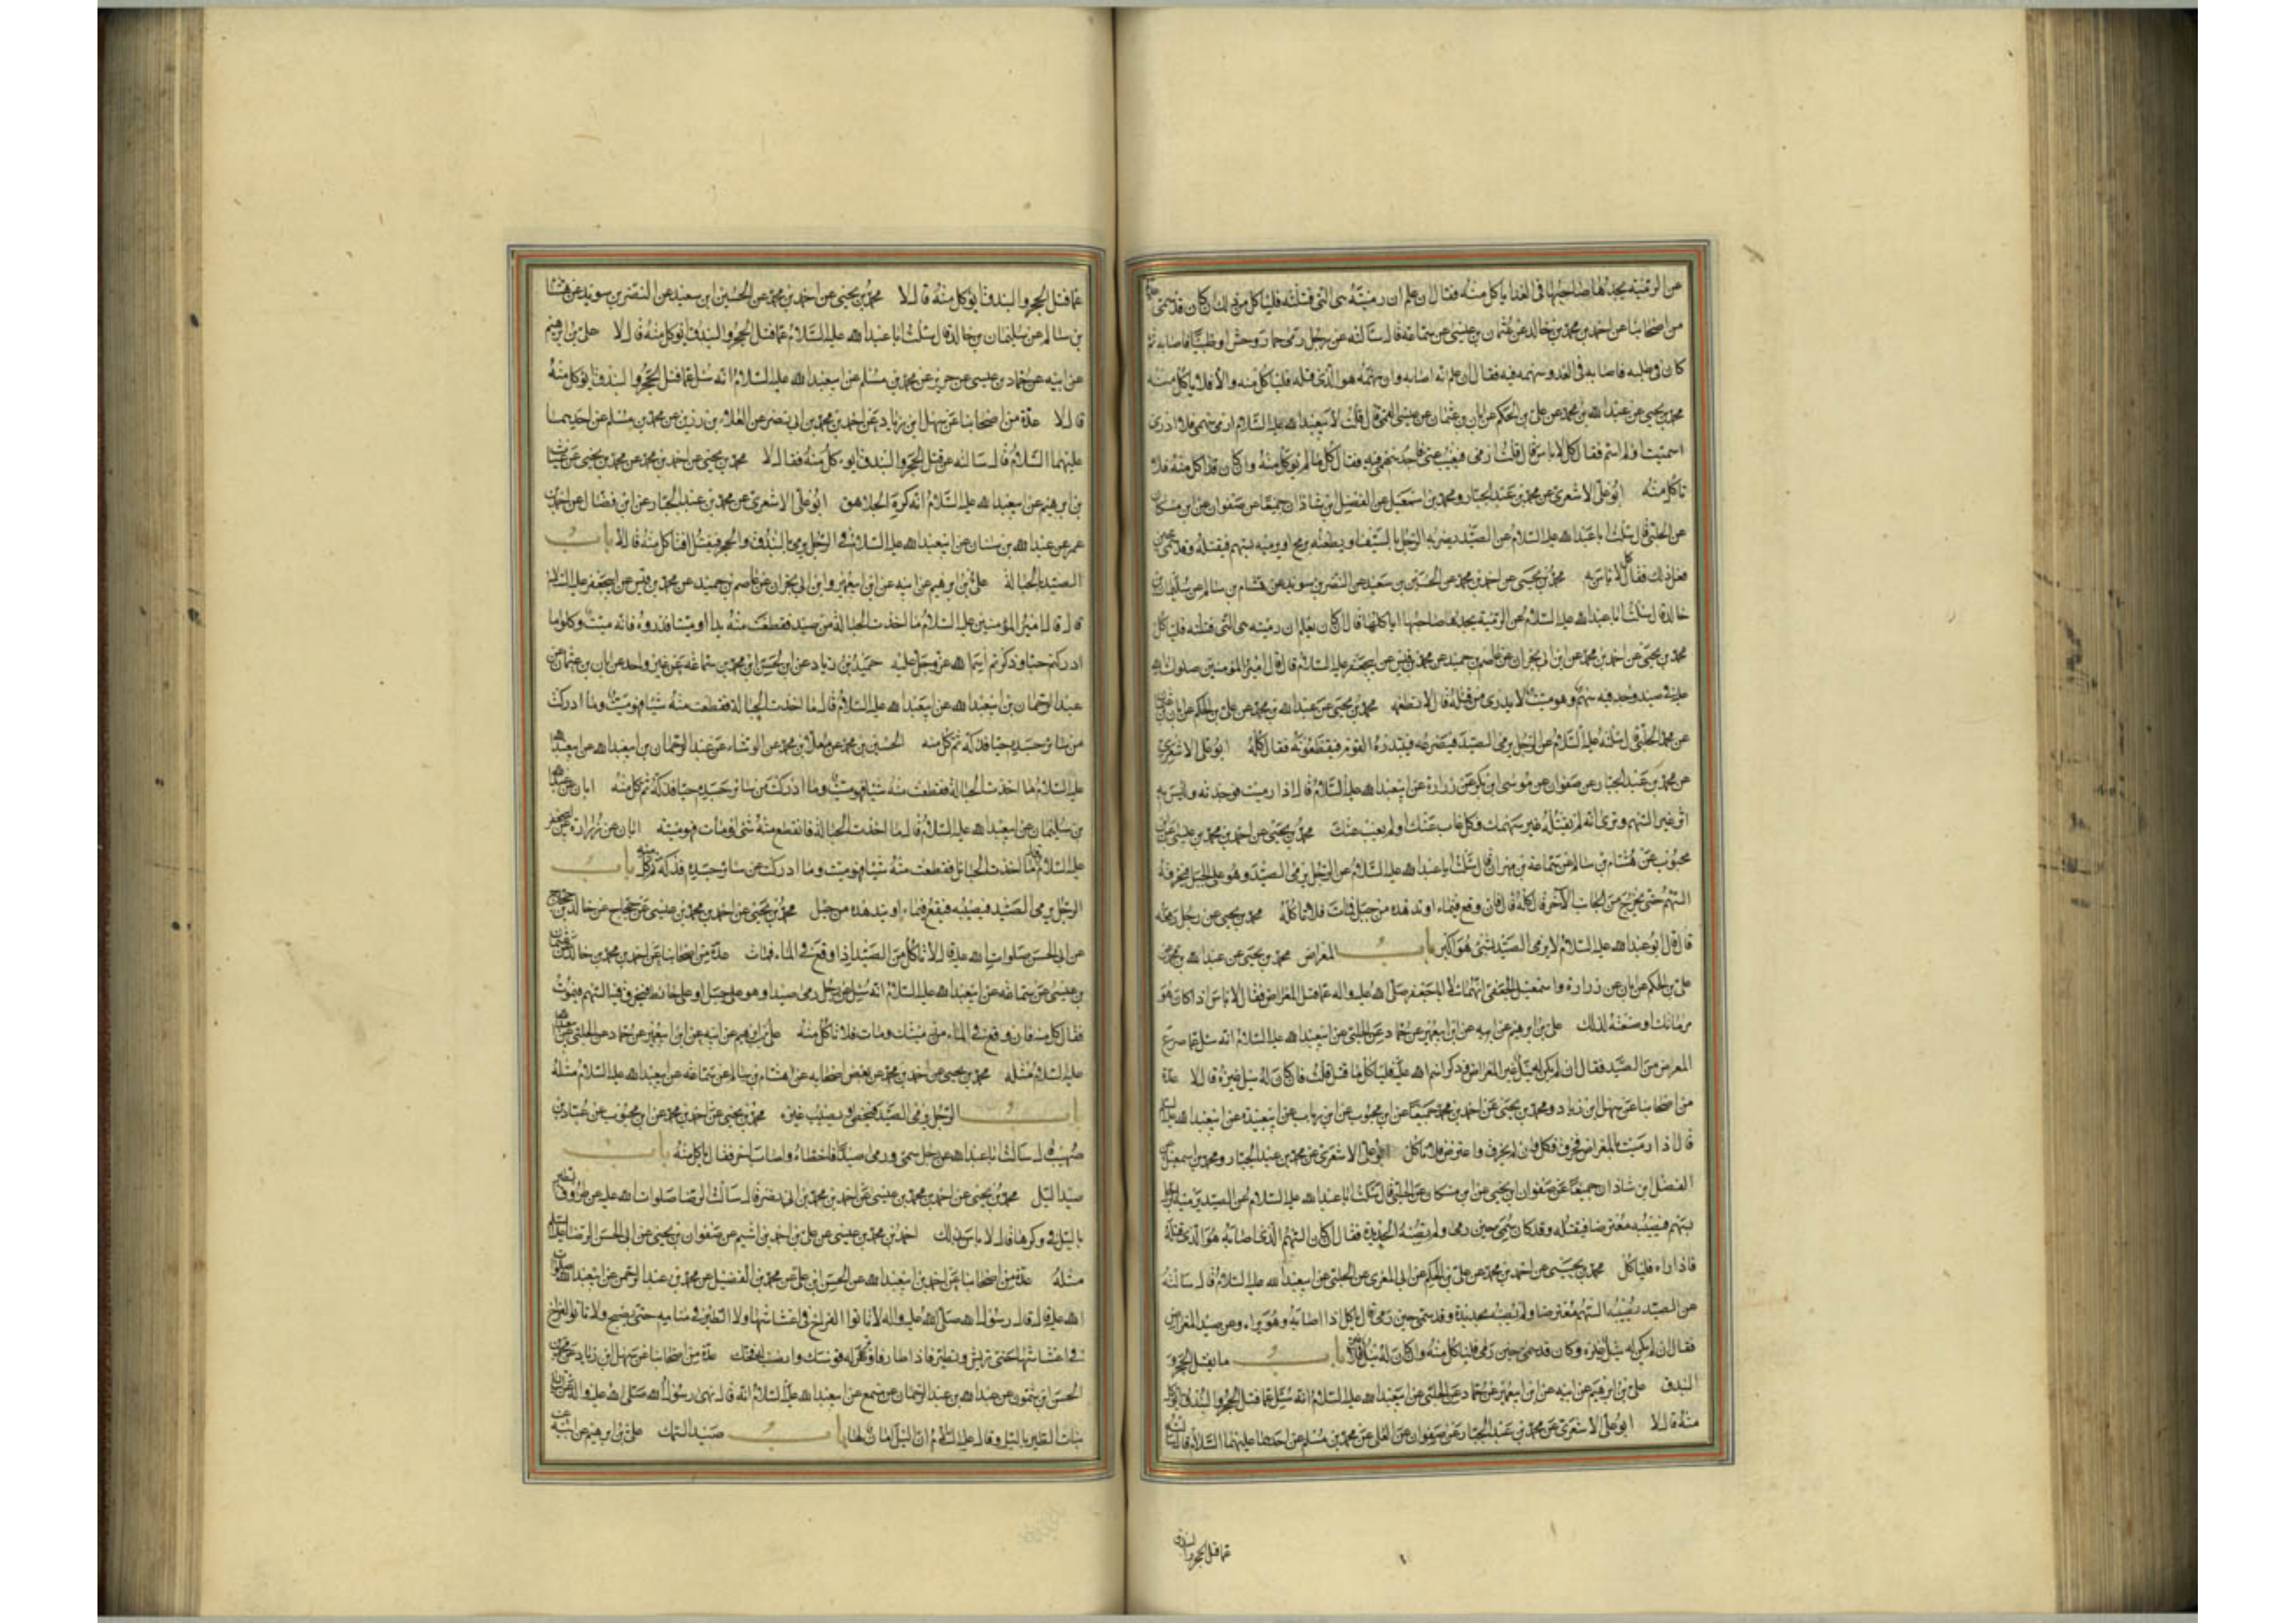 عن الرميّة يجدها صاحبها فى الغد ايأكل منه فقال ان علم ان رميّته هى التى قتلته فليأكل من ذلك ان كان قد سمّى عدّة
من اصحابنا عن احمد بن محمد بن خالد عن عثمان بن عيسى عن سماعة قال سألته عن رجل رمى حمار وحش او ظبيا فاصابه ثم
كان فى طلبه فاصابه فى الغد وسهمه فيه فقال ان علم انه اصابه وان سهمه هو الذى قتله فليأكل منه والا فلا يأكل منه
محمد بن يحيى عن عبد الله بن محمد عن على بن الحكم عن ابان بن عثمان عن عيسى القمى قال قلت لابيعبد الله عليه السّلام ارمى سهمى فلا ادرى
اسميت او لم اسم فقال كل لا باس قال قلت ارمى فيغيب عنى فاجد سهمى فيه فقال كل ما لم يؤكل منه وان كان قد اكل منه فلا
تاكل منه ابو على الاشعرى عن محمد بن عبد الجبار ومحمد بن اسمعيل عن الفضل بن شاذان جميعا عن صفوان عن ابن مسكان
عن الحلبى قال سئلت ابا عبد الله عليه السلام عن الصيد يضربه الرجل بالسيف او يطعنه برمح او يرميه بسهم فيقتله وقد سمى حين
فعل ذلك فقال كل لا باس به محمد بن يحيى عن احمد بن محمد عن الحسين بن سعيد عن النضر بن سويد عن هشام بن سالم عن سليمان بن
خالد قال سئلت ابا عبد الله عليه السلام عن الرمية يجدها صاحبها ايأكلها قال ان كان يعلم ان رميته هى التى قتلته فليأكل
محمد بن يحيى عن احمد بن محمد عن ابن ابى نجران عن عاصم بن حميد عن محمد بن قيس عن ابيجعفر عليه السلام قال قال امير المؤمنين صلوات الله
عليه فى صيد وجد فيه سهم وهو ميت لا يدرى من قتله قال لا تطعمه محمد بن يحيى عن عبد الله بن محمد عن على بن الحكم عن ابان بن عثمان
عن محمد الحلبى قال سئلته عليه السلام عن الرجل يرمى الصيد فيصرعه فيبتدره القوم فيقطعونه فقال كله ابو على الاشعرى
عن محمد بن عبد الجبار عن صفوان عن موسى بن بكر عن زرارة عن ابيعبد الله عليه السلام قال اذا رميت فوجدته وليس به
اثر غير السهم وترى انه لم يقتله غير سهمك فكل غاب عنك او لم يغب عنك محمد بن يحيى عن احمد بن محمد بن عيسى عن ابن
محبوب عن هشام بن سالم عن سماعة بن مهران قال سئلت ابا عبد الله عليه السلام عن الرجل يرمى الصيد وهو على الجبل فيخرقه
السهم حتى يخرج من الجانب الآخر قال كله قال فان وقع فى ماء او تدهده من جبل فمات فلا تاكله محمد بن يحيى عن رجل رفعه
قال قال ابو عبد الله عليه السلام لا يرمى الصيد بشئ هو اكبر منه باب المعراض محمد بن يحيى عن عبد الله بن محمد عن
على بن الحكم عن ابان عن زرارة واسمعيل الجعفى انهما سألا ابا جعفر صلى الله عليه واله عما قتل المعراض فقال لا باس اذا كان هو
مرماتك او صنعته لذلك على بن ابرهيم عن ابيه عن ابن ابيعمير عن حماد عن الحلبى عن ابيعبد الله عليه السلام انه سئل عما صرع
المعراض من الصيد فقال ان لم يكن له نبل غير المعراض وذكر اسم الله عليه فليأكل ما قتل قلت فان كان له نبل غيره قال لا عدة
من اصحابنا عن سهل ابن زياد ومحمد بن يحيى عن احمد بن محمد جميعا عن ابن محبوب عن ابن رياب عن ابيعبيدة عن ابيعبد الله عليه السلام
قال اذا رميت بالمعراض فخرق فكل وان لم يخرق واعترض فلا تاكل ابو على الاشعرى عن محمد بن عبد الجبار ومحمد بن اسمعيل عن
الفضل ابن شاذان جميعا عن صفوان بن يحيى عن ابن مسكان عن الحلبى قال سئلت ابا عبد الله عليه السلام عن الصيد يرميه الرجل
بسهم فيصيبه معترضا فيقتله وقد كان سمى حين رمى ولم تصبه الحديدة فقال ان كان السهم الذى اصابه هو الذى قتله
فاذا راه فليأكل محمد بن يحيى عن احمد بن محمد عن على بن الحكم عن ابى المغرى عن الحلبى عن ابيعبد الله عليه السلام قال سالته
عن الصيد يصيبه السهم معترضا ولم يصبه بحديدة وقد سمى حين رمى قال ياكل اذا اصابه وهو يراه وعن صيد المعراض
فقال ان لم يكن له نبل غيره وكان قد سمى حين رمى فليأكل منه وان كان له نبل غيره فلا باب ما يقتل الحجر و
البندق على بن ابرهيم عن ابيه عن ابن ابيعمير عن حماد عن الحلبى عن ابيعبد الله عليه السلام انه سئل عما قتل الحجر والبندق ايؤكل
منه قال لا ابو على الاشعرى عن محمد بن عبد الجبار عن صفوان عن العلى عن محمد بن مسلم عن احدهما عليهما السلام قال سألته
عما قتل الحجر والبندق
عما قتل الحجر والبندق ايؤكل منه قال لا محمد بن يحيى عن احمد بن محمد عن الحسين ابن سعيد عن النضر بن سويد عن هشام
بن سالم عن سليمان بن خالد قال سئلت ابا عبد الله عليه السلام عما قتل الحجر والبندق ايؤكل منه قال لا على بن ابرهيم
عن ابيه عن حماد بن عيسى عن حريز عن محمد بن مسلم عن ابيعبد الله عليه السلام انه سئل عما قتل الحجر والبندق ايؤكل منه
قال لا عدة من اصحابنا عن سهل ابن زياد عن احمد بن محمد بن ابى نصر عن العلاء بن رزين عن محمد بن مسلم عن احديهما
عليهما السلام قال سالته عن قتل الحجر والبندق ايوكل منه فقال لا محمد بن يحيى عن احمد بن محمد عن محمد بن يحيى عن غياث
بن ابرهيم عن ابيعبد الله عليه السلام انه كره الجلاهق ابو على الاشعرى عن محمد بن عبد الجبار عن ابن فضال عن احمد بن
عمر عن عبد الله بن سنان عن ابيعبد الله عليه السلام فى الرجل يرمى بالبندق والحجر فيقتل افيأكل منه قال لا باب
الصيد بالحبالة على بن ابرهيم عن ابيه عن ابن ابيعمير وابن ابى نجران عن عاصم بن حميد عن محمد بن قيس عن ابيجعفر عليه السلام
قال قال امير المؤمنين عليه السلام ما اخذت الحبالة من صيد فقطعت منه يدا او رجلا فذروه فانه ميت وكلوا ما
ادركتم حيا وذكرتم اسم الله عز وجل عليه حميد بن زياد عن الحسن ابن محمد بن سماعة عن غير واحد عن ابان بن عثمان عن
عبد الرحمان بن ابيعبد الله عن ابيعبد الله عليه السلام قال ما اخذت الحبالة فقطعت منه شيئا فهو ميت وما ادركت
من سائر جسده حيا فذكه ثم كل منه الحسين بن محمد عن معلى بن محمد عن الوشاء عن عبد الرحمان بن ابيعبد الله عن ابيعبد الله
عليه السلام ما اخذت الحبالة فقطعت منه شيئا فهو ميت وما ادركت من سائر جسده حيا فذكه ثم كل منه ابان عن عبد الله
بن سليمان عن ابيعبد الله عليه السلام قال ما اخذت الحبالة فانقطع منه شئ او مات فهو ميتة ابان عن زرارة عن ابيجعفر
عليه السلام قال ما اخذت الحبائل فقطعت منه شيئا فهو ميت وما ادركت من سائر جسده فذكه ثم كل منه باب
الرجل يرمى الصيد فيصيبه فيقع فى ماء او يتدهده من جبل محمد بن يحيى عن احمد بن محمد بن عيسى عن حجاج عن خالد بن الحجاج
عن ابى الحسن صلوات الله عليه قال لا تاكل من الصيد اذا وقع فى الماء فمات عدة من اصحابنا عن احمد بن محمد بن خالد عن عثمان
بن عيسى عن سماعة عن ابيعبد الله عليه السلام انه سئل عن رجل رمى صيدا وهو على جبل او على حائط فيخرق فيه السهم فيموت
فقال كل منه فان وقع فى الماء من رميتك ومات فلا تاكل منه على بن ابرهيم عن ابيه عن ابن ابيعمير عن حماد عن الحلبى عن ابيعبد الله
عليه السلام مثله محمد بن يحيى عن احمد بن محمد عن بعض اصحابه عن هشام بن سالم عن سماعة عن ابيعبد الله عليه السلام مثله
باب الرجل يرمى الصيد فيخطى ويصيب غيره محمد بن يحيى عن احمد بن محمد عن ابن محبوب عن عباد بن
صهيب قال سالت ابا عبد الله عن رجل سمى ورمى صيدا فاخطاه واصاب اخر فقال ياكل منه باب
صيد الليل محمد بن يحيى عن احمد بن محمد بن عيسى عن احمد بن محمد بن ابى نصر قال سالت الرضا صلوات الله عليه عن طروق الطير
بالليل فى وكرها قال لا باس بذلك احمد بن محمد بن عيسى عن على بن احمد بن اشيم عن صفوان بن يحيى عن ابى الحسن الرضا عليه السلام
مثله عدة من اصحابنا عن احمد بن ابيعبد الله عن الحسن ابن على عن محمد بن الفضيل عن محمد بن عبد الرحمن عن ابيعبد الله صلوات
الله عليه قال قال رسول الله صلى الله عليه واله لا تاتوا الفراخ فى اعشاشها ولا الطير فى منامه حتى يصبح ولا تاتوا الفراخ
فى اعشاشها حتى تريش وتطير فاذا طار فاوتر له قوسك وانصب له فخك عدة من اصحابنا عن سهل ابن زياد عن محمد بن
الحسن ابن شمون عن عبد الله بن عبد الرحمان عن مسمع عن ابيعبد الله عليه السلام انه قال نهى رسول الله صلى الله عليه واله عن
بيات الطير بالليل وقال عليه السلام ان الليل امان لها باب صيد السمك على بن ابرهيم عن ابيه عن